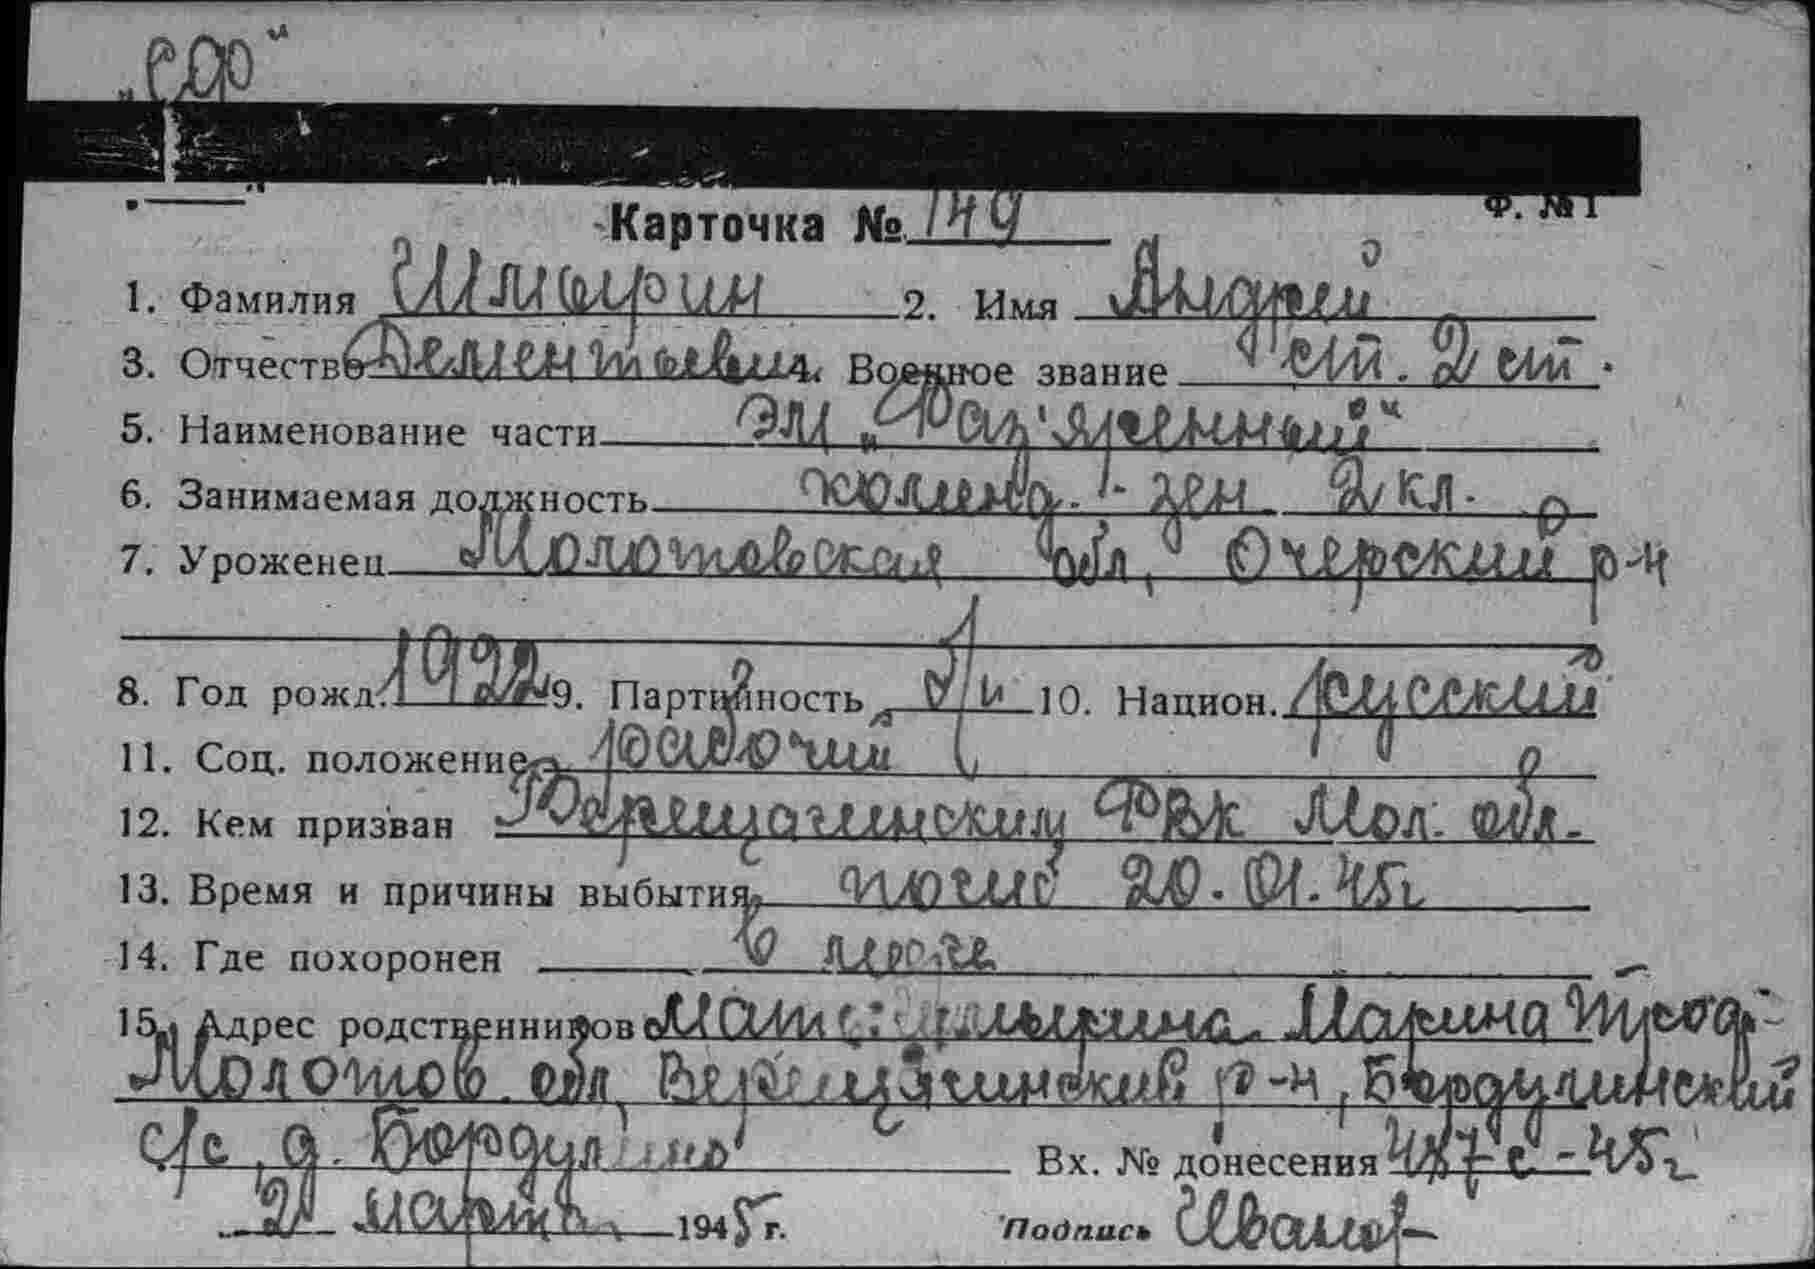 „СФ"
Карточка № 149 Ф. № 1
1. Фамилия Шлыгрин 2. Имя Андрей
3. Отчество Дементьевич 4. Военное звание ст. 2 ст.
5. Наименование части ЭМ „Раз'яренный"
6. Занимаемая должность команд. зен 2 кл.
7. Уроженец Молотовская обл, Очерский р-н
8. Год рожд. 1922 9. Партийность б/п 10. Национ. русский
11. Соц. положение рабочий
12. Кем призван Верещагинским РВК Мол. обл.
13. Время и причины выбытия погиб 20.01.45г
14. Где похоронен в море
15. Адрес родственников Мать: Марина
Молотов. обл, Верещагинский р-н, Бородулинский
с/с, д. Бородулино Вх. № донесения 487с-45г
2 марта 1945 г. Подпись Иванов